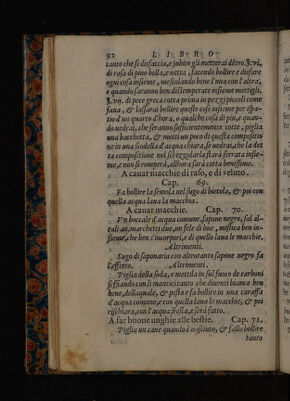 92 L I B R O
tanto che si disfaccia, e subito gli metterai dẽtro. ℥.vi.
di rasa di pino bella, e netta, facendo bollire e disfare
ogni cosa insieme, mescolando bene l'una con l'altra,
e quando saranno ben distemperate insieme mettigli
℥.vij. di pece greca rotta prima in pezzi piccoli come
faua, & lassarai bollire queste cose insieme per spa-
tio d'un quarto d'hora, o qualche cosa di piu, e quan-
do uedrai, che seranno sufficientemente cotte, piglia
una bacchetta, & metti un poco di quella compositio
ne in una scodella d'acqua chiara, se uedrai, che la det
ta compositione nel sfregolarla starà serrata insie-
me, e non si romperà, allhora sarà cotta benissimo.
A cauar macchie di raso, e di veluto.
Cap. 69.
Fa bollire la semola nel sugo di bietola, & poi con
quella acqua laua la macchia.
A cauar macchie. Cap. 70.
Un boccale d'acqua comune, sapone negro, sal al-
cali an. marchetti due, un fele di bue, mistica ben in-
sieme, che ben s'incorpori, e di quello laua le macchie.
Altrimenti.
Sugo di saponaria con altrotanto sapone negro fa
l'effetto. Altrimenti.
Piglia della soda, e mettila in sul fuoco de carboni
soffiando con li mantici tanto che diuenti bianca ben
bene, dellaquale, & pesta e fa bollire in una caraffa
d'acqua comune, e con quella laua le macchie, & poi
rischiara, con l'acqua fresca, e serà fatto.
A far buone unghie alle bestie. Cap. 71.
Piglia un cane quando è nasciuto, & fallo bollire
tanto